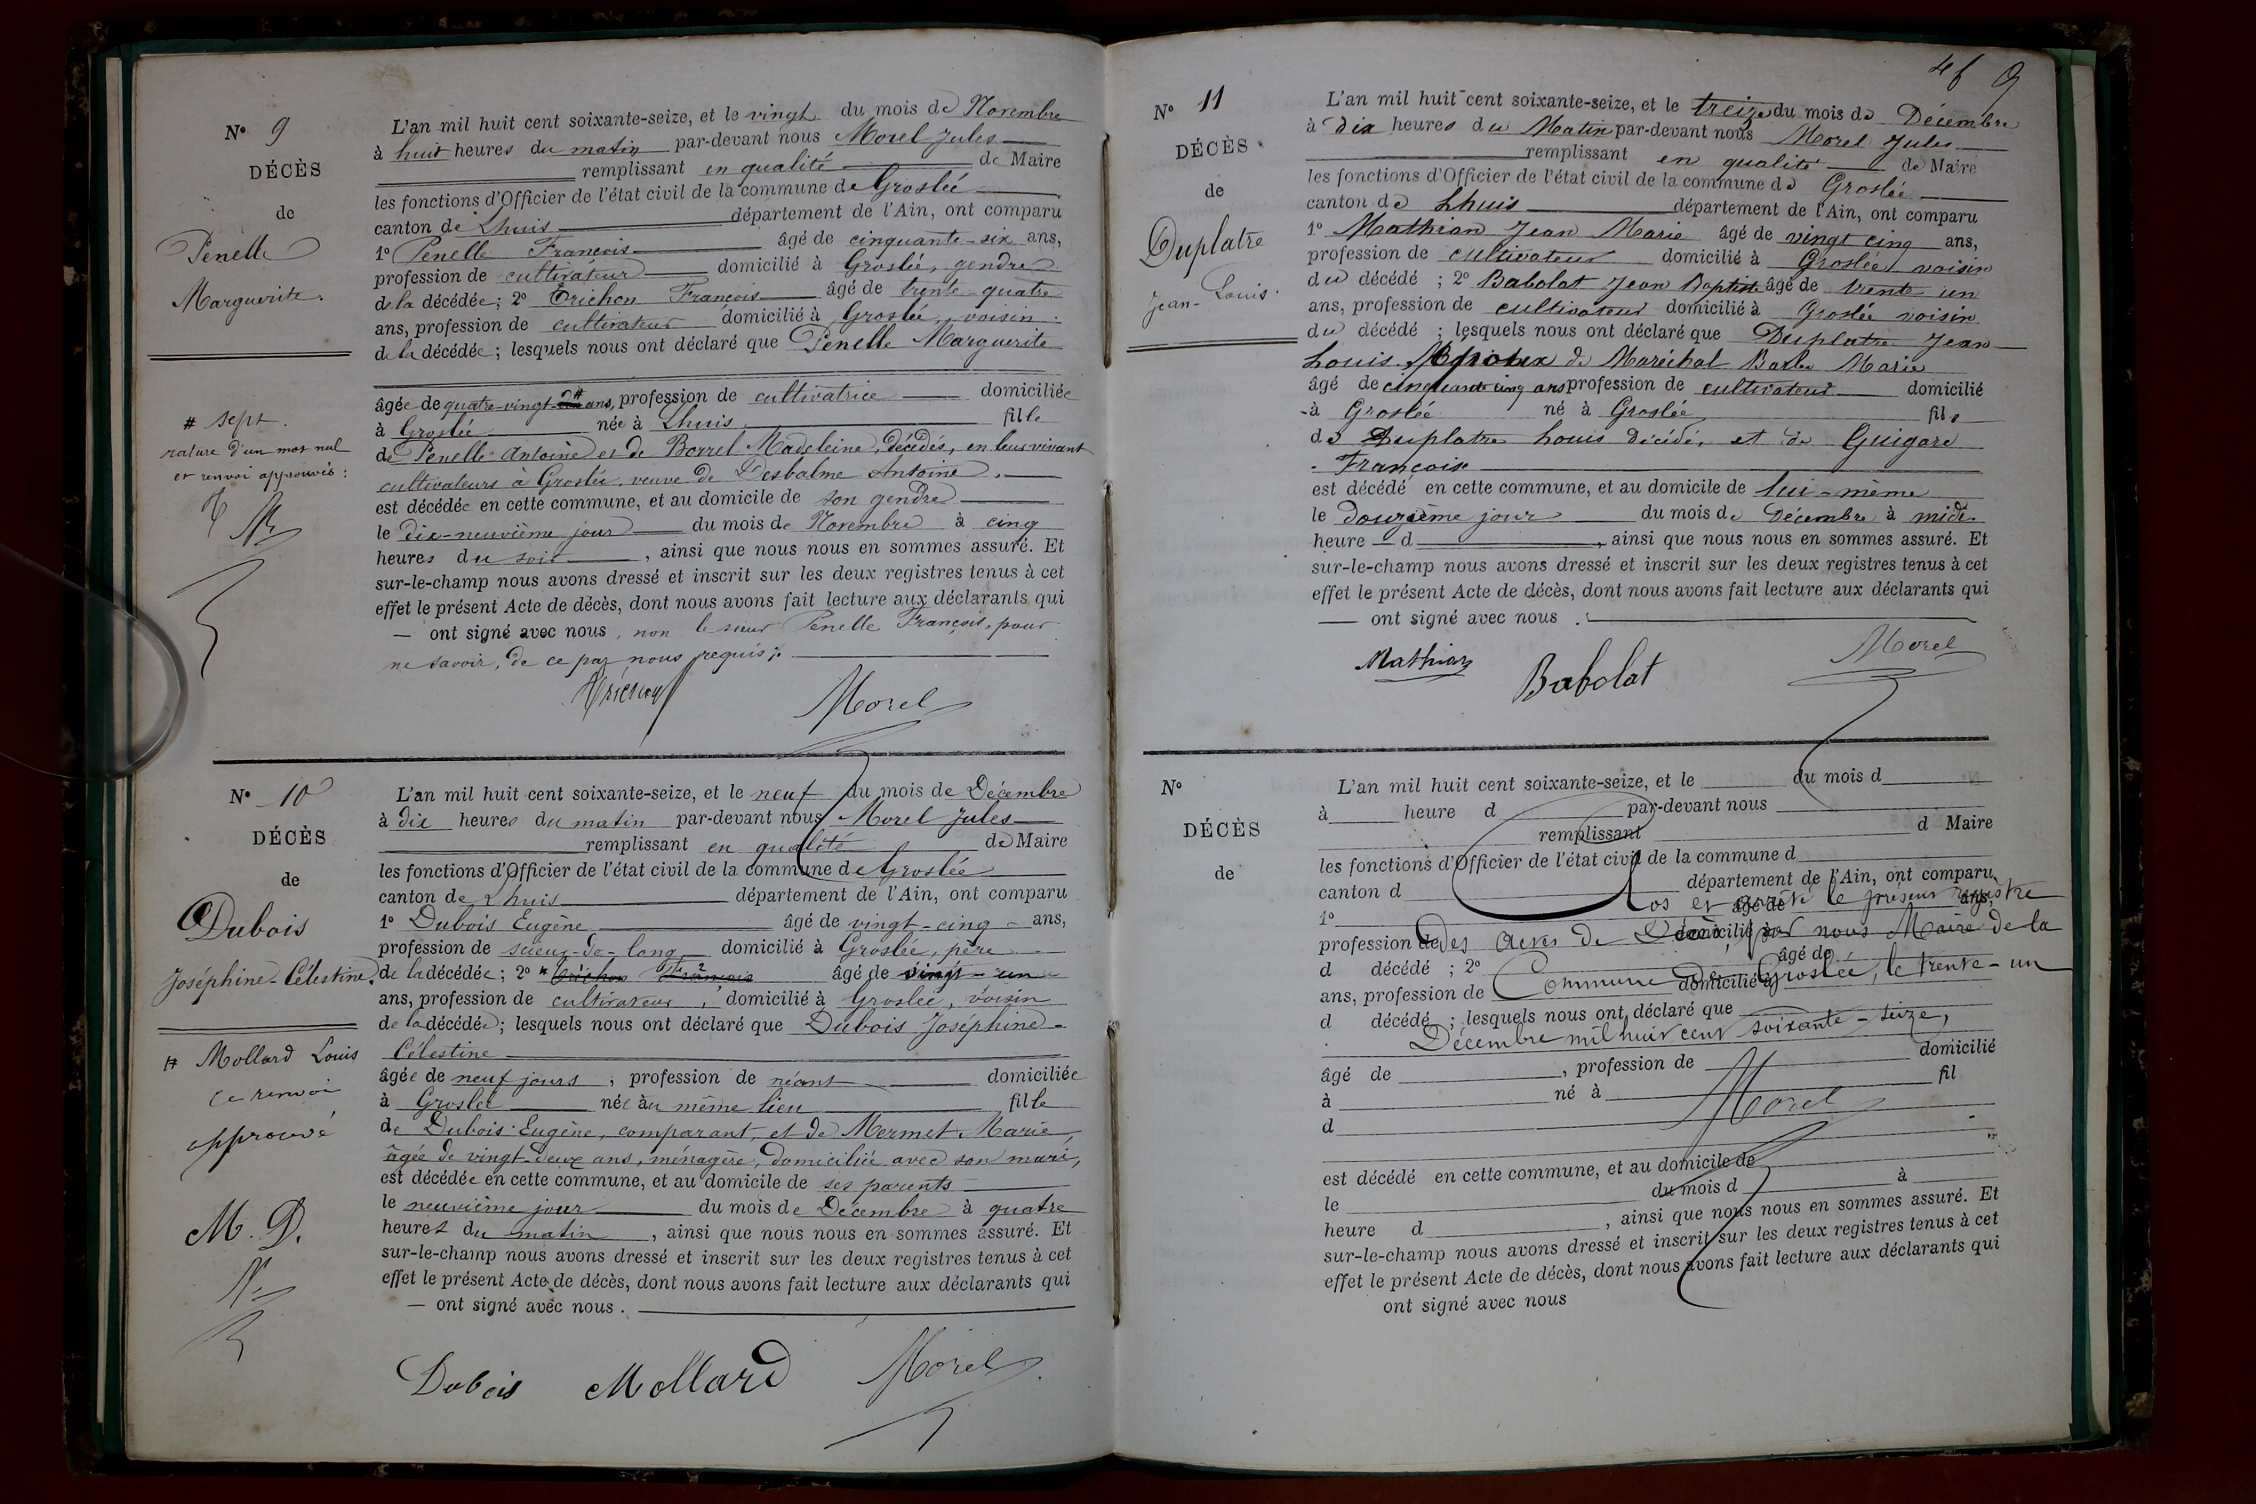 N° 9
DÉCÈS
de
Penelle
Marguerite.
# sept.
rature d'un mot nul
et renvoi approuvés :
L'an mil huit cent soixante-seize, et le vingt du mois de Novembre
à huit heures du matin par-devant nous Morel Jules
remplissant en qualité de Maire
les fonctions d'Officier de l'état civil de la commune de Groslée
canton de Lhuis département de l'Ain, ont comparu
1° Penelle François âgé de cinquante-six ans,
profession de cultivateur domicilié à Groslée, gendre
de la décédée ; 2° Crichon François âgé de trente quatre
ans, profession de cultivateur domicilié à Groslée, voisin
de la décédée ; lesquels nous ont déclaré que Penelle Marguerite
âgée de quatre-vingt # ans, profession de cultivatrice domiciliée
à Groslée née à Lhuis fille
de Penelle Antoine et de Borrel Madeleine, décédés, en leur vivant
cultivateurs à Groslée, veuve de Desbalme Antoine,
est décédée en cette commune, et au domicile de son gendre
le dix-neuvième jour du mois de Novembre à cinq
heures du soir, ainsi que nous nous en sommes assuré. Et
sur-le-champ nous avons dressé et inscrit sur les deux registres tenus à cet
effet le présent Acte de décès, dont nous avons fait lecture aux déclarants qui
— ont signé avec nous, non le sieur Penelle François, pour
ne savoir, de ce par nous requis ;
Morel
N° 10
DÉCÈS
de
Dubois
Joséphine-Célestine.
# Mollard Louis
ce renvoi
approuvé
M. D.
L'an mil huit cent soixante-seize, et le neuf du mois de Décembre
à dix heures du matin par-devant nous Morel Jules
remplissant en qualité de Maire
les fonctions d'Officier de l'état civil de la commune de Groslée
canton de Lhuis département de l'Ain, ont comparu
1° Dubois Eugène âgé de vingt-cinq ans,
profession de scieur-de-long domicilié à Groslée, père
de la décédée ; 2° # Crichon François âgé de vingt-un
ans, profession de cultivateur, domicilié à Groslée, voisin
de la décédée ; lesquels nous ont déclaré que Dubois Joséphine-
Célestine
âgée de neuf jours, profession de néant domiciliée
à Groslée née au même lieu fille
de Dubois Eugène, comparant, et de Mermet Marie,
âgée de vingt-deux ans, ménagère, domiciliée avec son mari,
est décédée en cette commune, et au domicile de ses parents
le neuvième jour du mois de Décembre à quatre
heures du matin, ainsi que nous nous en sommes assuré. Et
sur-le-champ nous avons dressé et inscrit sur les deux registres tenus à cet
effet le présent Acte de décès, dont nous avons fait lecture aux déclarants qui
— ont signé avec nous.
Dubois Mollard Morel
N° 11
DÉCÈS
de
Duplatre
Jean-Louis.
L'an mil huit cent soixante-seize, et le treize du mois de Décembre
à dix heures du Matin par-devant nous Morel Jules
remplissant en qualité de Maire
les fonctions d'Officier de l'état civil de la commune de Groslée
canton de Lhuis département de l'Ain, ont comparu
1° Mathian Jean Marie âgé de vingt cinq ans,
profession de cultivateur domicilié à Groslée voisin
du décédé ; 2° Babolat Jean Baptiste âgé de trente un
ans, profession de cultivateur domicilié à Groslée voisin
du décédé ; lesquels nous ont déclaré que Duplatre Jean
Louis Epoux de Maréchal Barbe Marie
âgé de cinquante cinq ans profession de cultivateur domicilié
à Groslée né à Groslée fils
de Duplatre Louis décédé, et de Guigard
Françoise
est décédé en cette commune, et au domicile de lui-même
le douzième jour du mois de Décembre à midi
heure d, ainsi que nous nous en sommes assuré. Et
sur-le-champ nous avons dressé et inscrit sur les deux registres tenus à cet
effet le présent Acte de décès, dont nous avons fait lecture aux déclarants qui
— ont signé avec nous.
Mathian Babolat Morel
N°
DÉCÈS
de
L'an mil huit cent soixante-seize, et le du mois d
à heure d par-devant nous
remplissant d Maire
les fonctions d'Officier de l'état civil de la commune d
canton d département de l'Ain, ont comparu
Clos et arrêté le présent registre
1° âgé de ans,
des actes de Décès, par nous Maire de la
profession de domicilié à
d décédé ; 2° âgé de
Commune de Groslée, le trente-un
ans, profession de domicilié à
d décédé ; lesquels nous ont déclaré que
Décembre mil huit cent soixante-seize,
âgé de, profession de domicilié
à né à fil
Morel
d
est décédé en cette commune, et au domicile de
le du mois d à
heure d, ainsi que nous nous en sommes assuré. Et
sur-le-champ nous avons dressé et inscrit sur les deux registres tenus à cet
effet le présent Acte de décès, dont nous avons fait lecture aux déclarants qui
ont signé avec nous